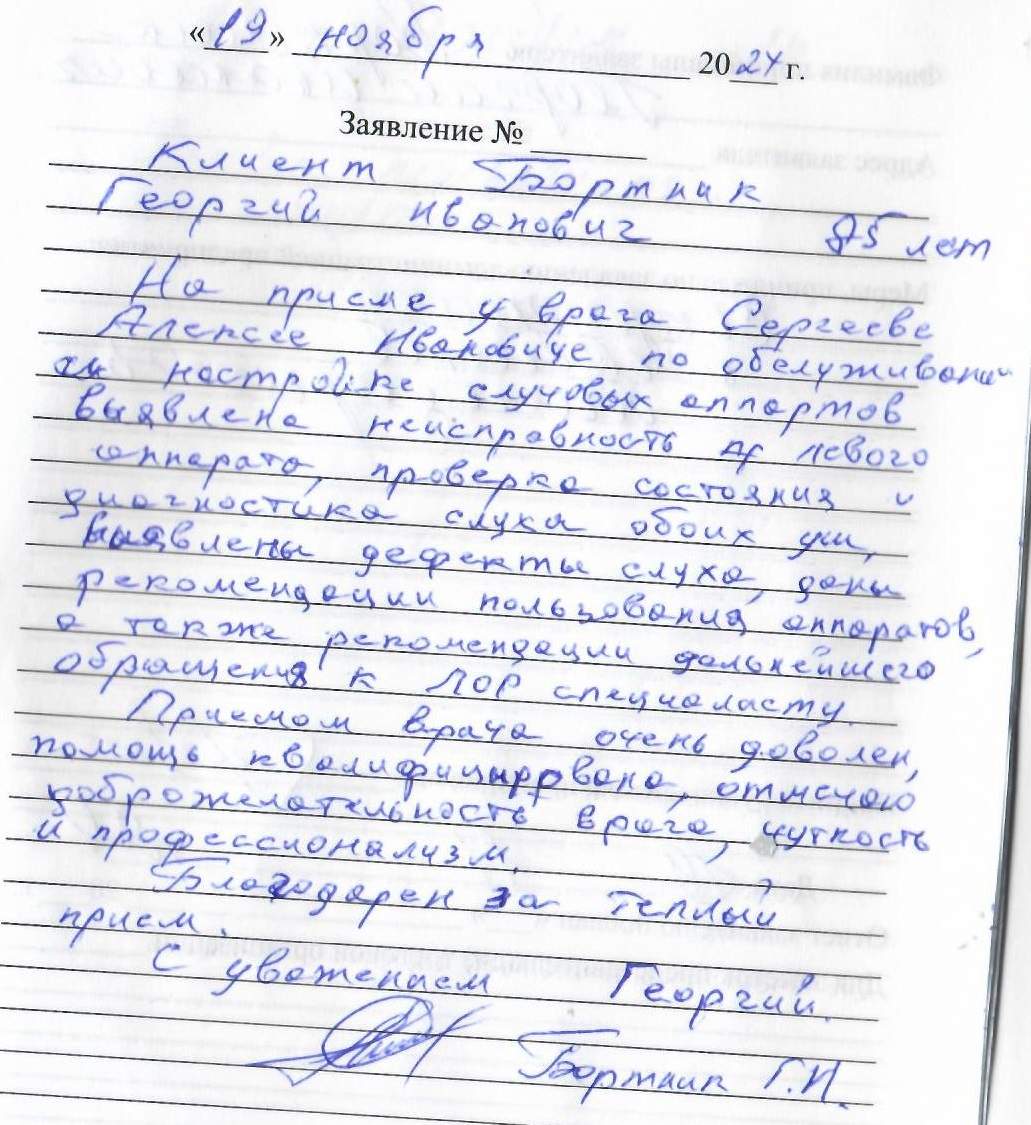 «19» ноября 2024 г.
Заявление №
Клиент Бортник
Георгий Иванович 85 лет
На приеме у врача Сергееве
Алексее Ивановиче по обслуживании
и настройке слуховых аппартов
выявлена неисправность левого
аппарата, проверка состояния и
диагностика слуха обоих уш,
выявлены дефекты слуха, даны
рекомендации пользования аппаратов,
а также рекомендации дальнейшего
обращения к ЛОР специалисту.
Приемом врача очень доволен,
помощь квалифицирована, отмечаю
доброжелательность врача, чуткость
и профессионализм.
Благодарен за теплый
прием.
С уважением Георгий.
Бортник Г.И.